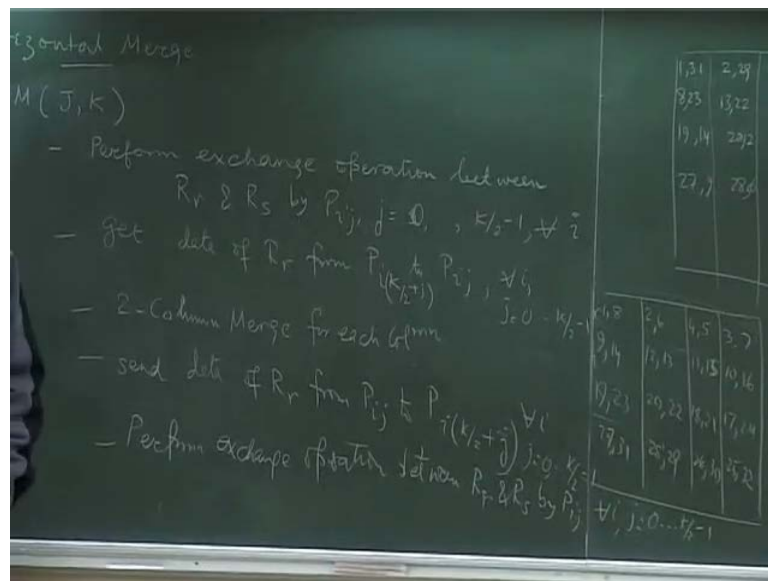 izontal Merge
M(J,K)
- Perform exchange operation between
Rr & Rs by Pij, j=0, , K/2-1, ∀ i
- get data of Rr from Pi(K/2+j) to Pij, ∀i,
j=0 - K/2-1
- 2-Column Merge for each Column
- send data of Rr from Pij to Pi(K/2+j) ∀i
j=0 - K/2-1
- Perform exchange operation between Rr & Rs by Pij ∀i, j=0...K/2-1
1,31 2,29
8,23 13,22
19,14 20,2
27,
1,8 2,6 4,5 3,7
9,14 12,13 11,15 10,16
19,23 20,22 18,21 17,24
27,31